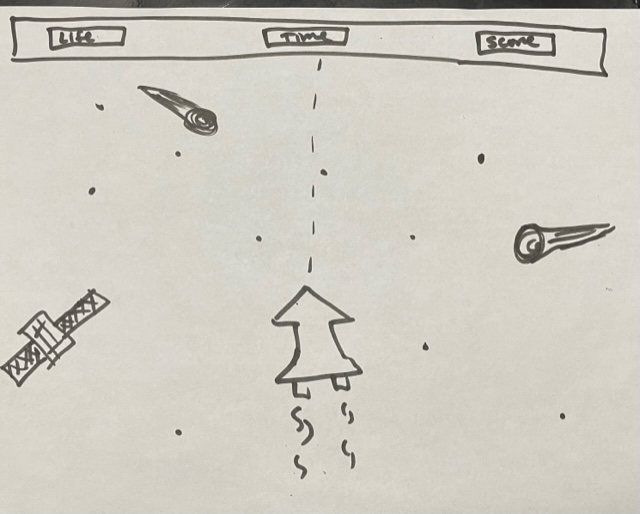 Life
Time
Score